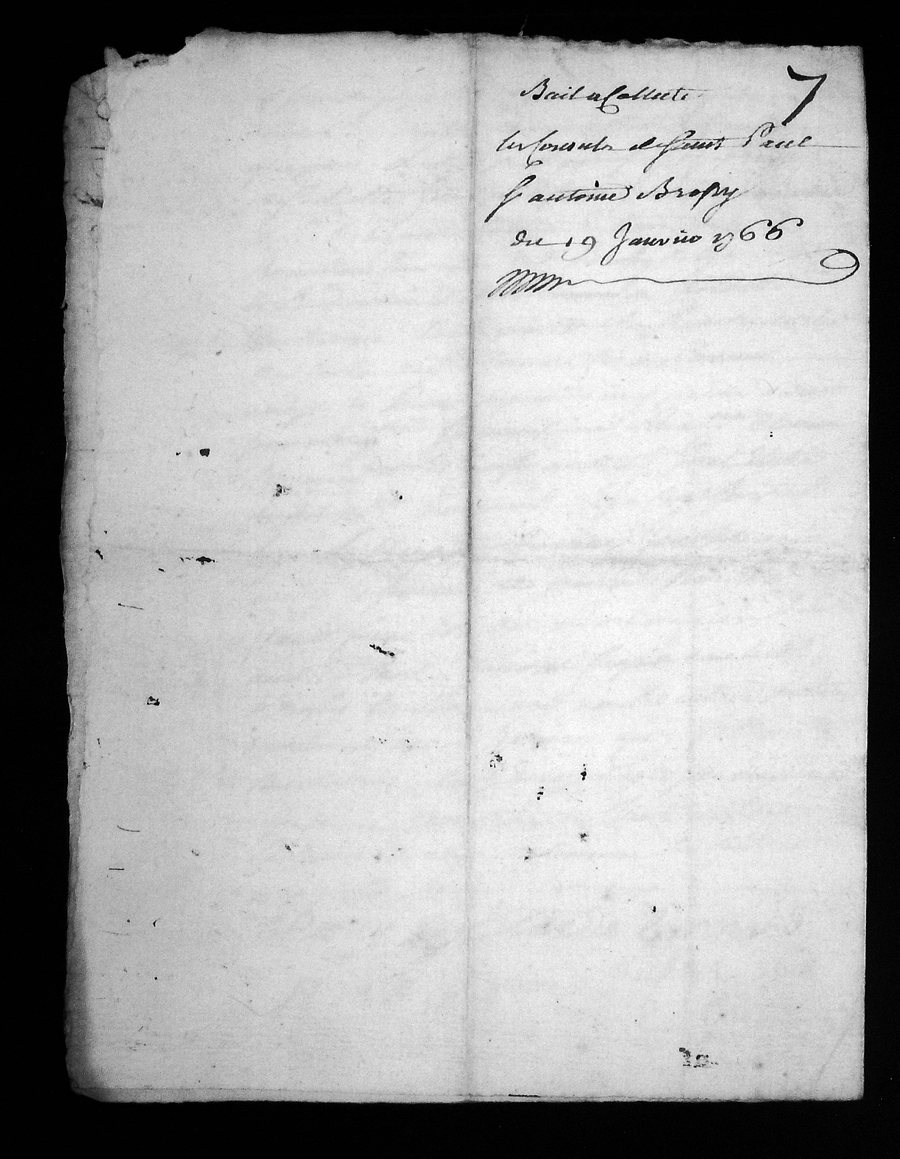 7
Bail a Collecte
les Consuls de Saint Paul
S antoine Brossy
du 19 Janvier 1766